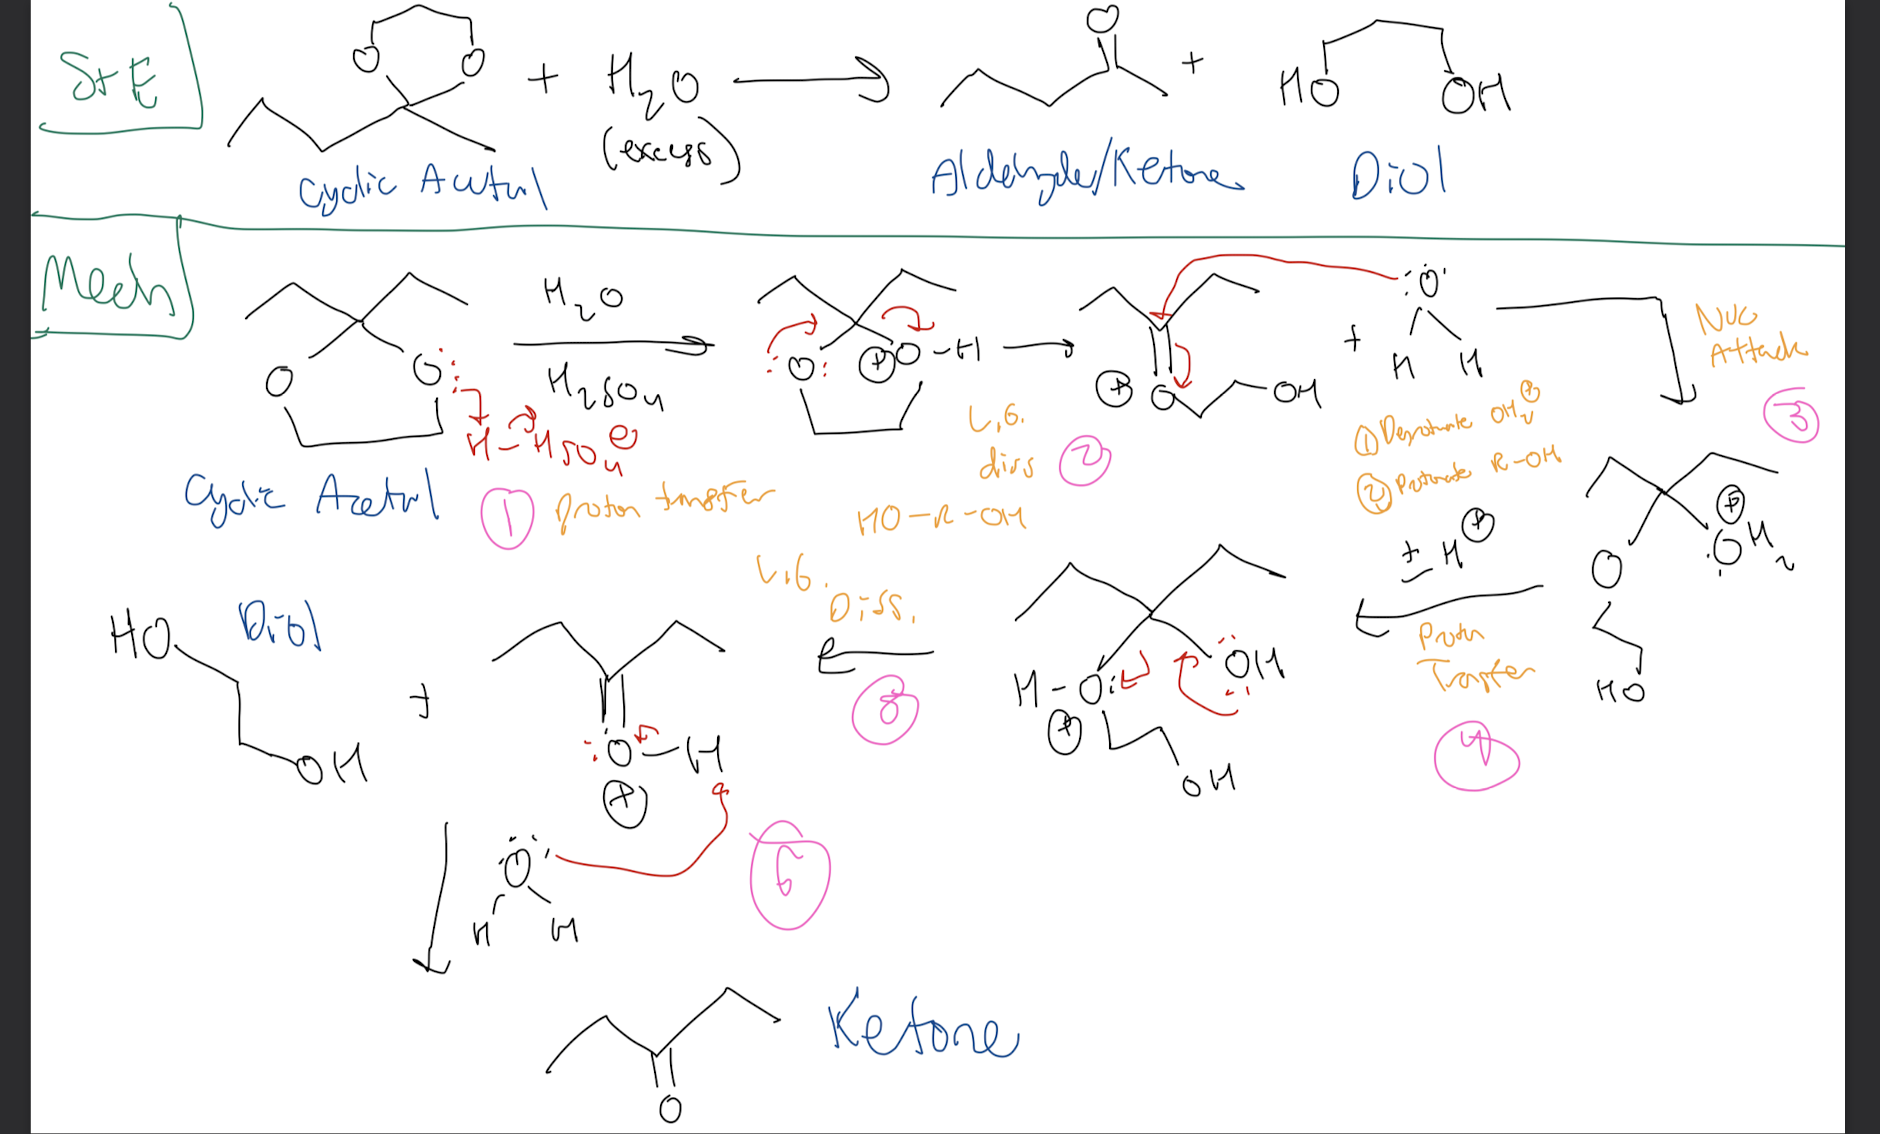 S+E
O O + H₂O → O + HO OH
(excess)
Cyclic Acetal
Aldehyde/Ketone
Diol
Mech
O O:
H-HSO₄ ⊖
H₂O
H₂SO₄
:O: ⊕O-H
⊕ O OH
+ :O: H H
Nuc
Attack
3
Cyclic Acetal
1 proton transfer
L.G.
diss 2
HO-R-OH
① Deprotonate OH₂⊕
② Protonate R-OH
± H⊕
Proton
Transfer
4
O :OH₂ ⊕
HO
L.G.
Diss.
8
H-O: ⊕ OH
OH
HO Diol
OH
+
:O-H
⊕
:O:
H H
6
O
Ketone